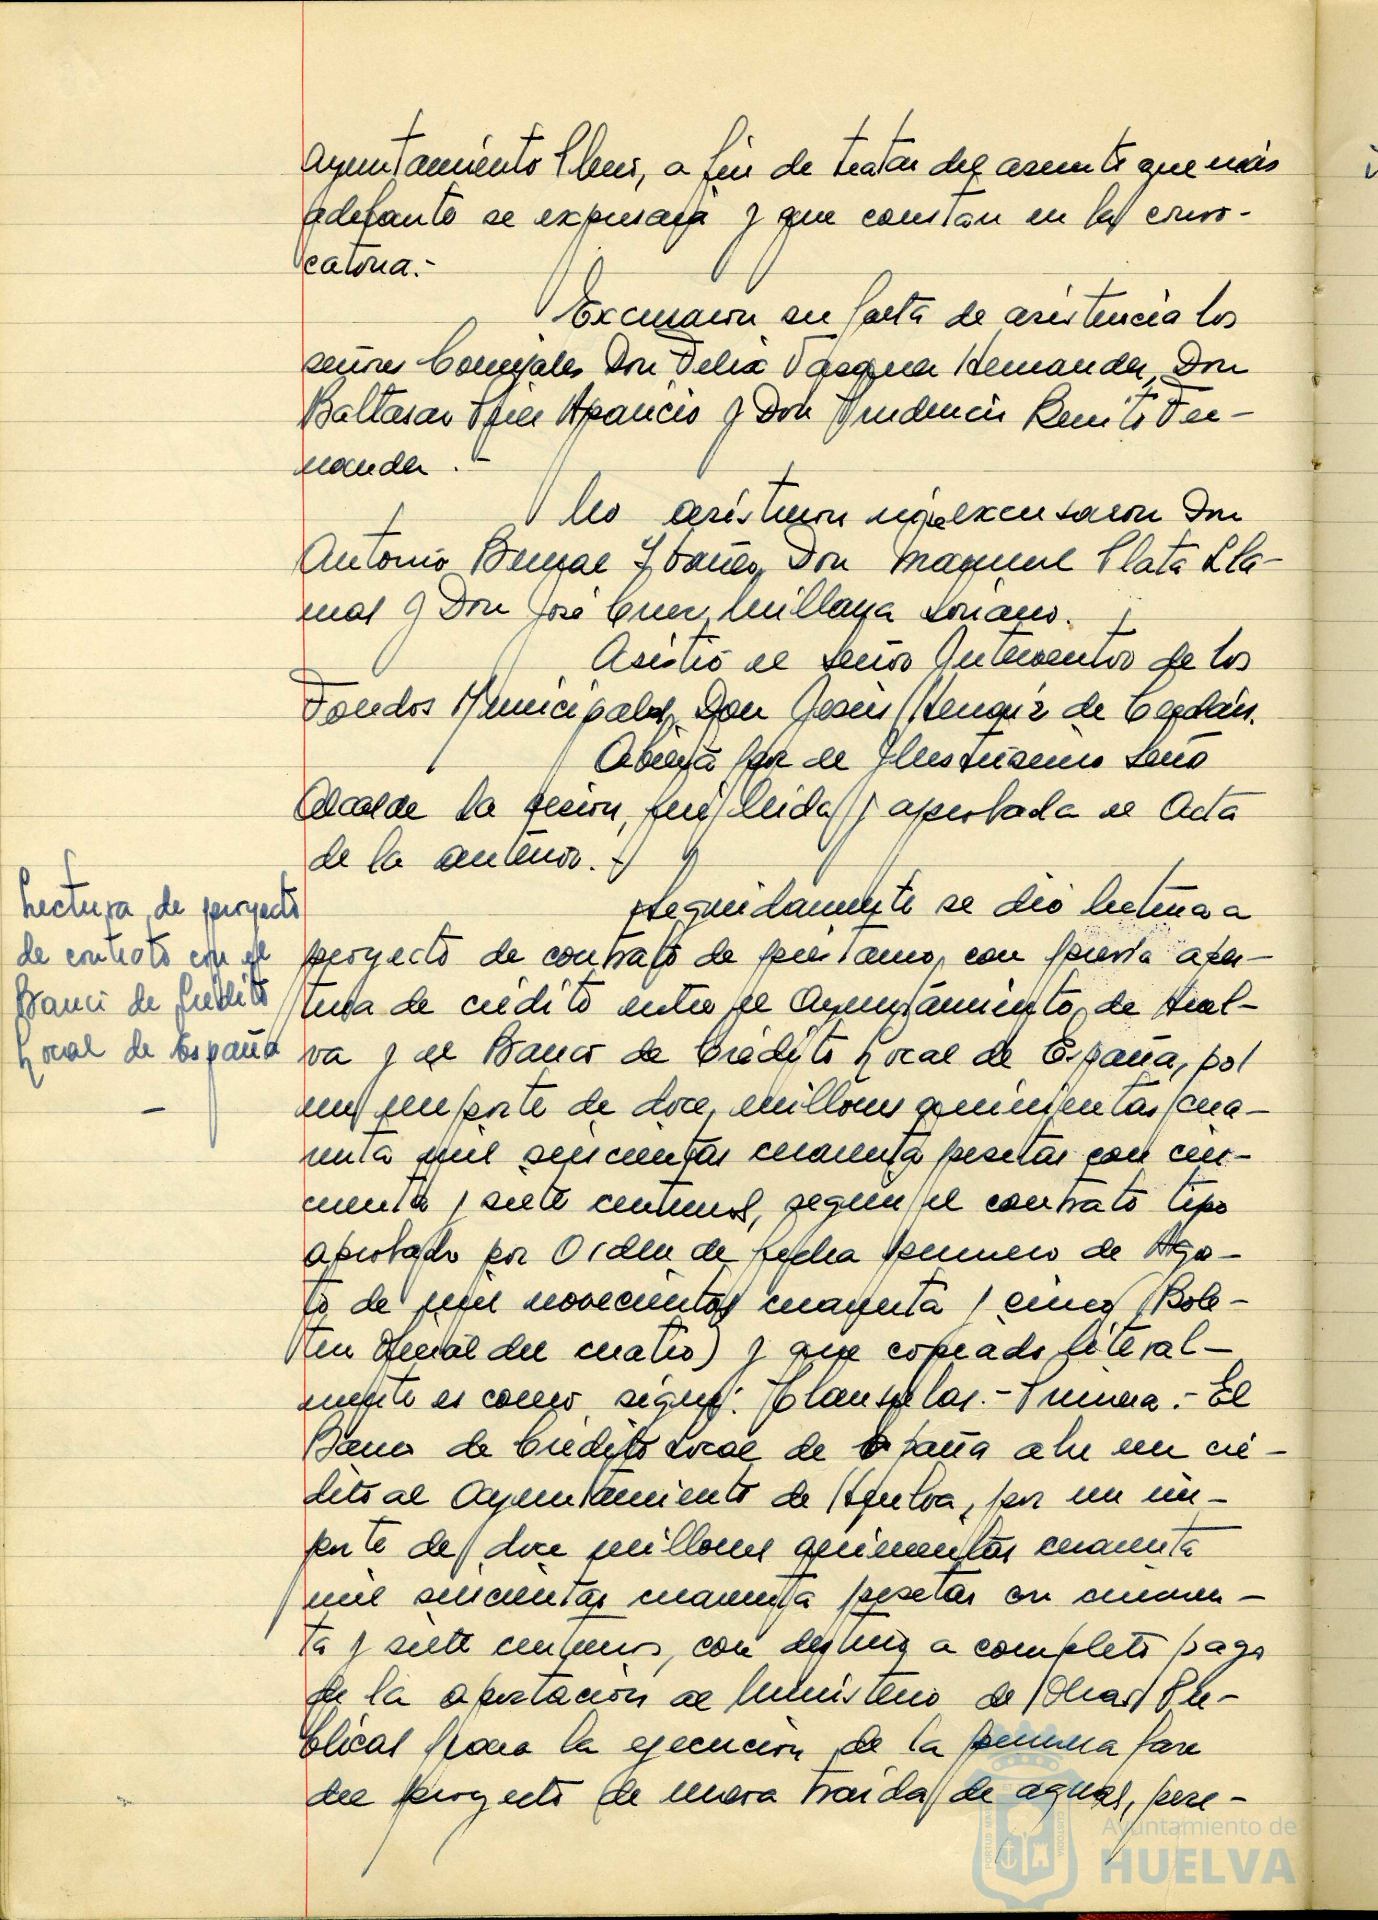 Ayuntamiento Pleno, a fin de tratar del asunto que más
adelante se expresará y que constan en la convo-
catoria.-
Excusaron su falta de asistencia los
señores Concejales Don Felix Vazquez Hernandez, Don
Baltasar Aparicio y Don Prudencio Benito Fer-
nandez.-
No asistieron ni se excusaron Don
Antonio Bernal Ybañez, Don Manuel Plata Lla-
nes y Don José Cruz Millana Soriano.
Asistió el Señor Interventor de los
Fondos Municipales, Don Jesús Hernaiz de Cerdán.
Abierta por el Ilustrisimo Señor
Alcalde la sesion, fue leida y aprobada el Acta
de la anterior.-
Lectura de proyecto
de contrato con el
Banco de Crédito
Local de España
—
Seguidamente se dió lectura a
proyecto de contrato de préstamo, con previa aper-
tura de crédito entre el Ayuntamiento de Huel-
va y el Banco de Crédito Local de España, por
un importe de doce millones quinientas cua-
renta mil seiscientas cuarenta pesetas con cin-
cuenta y siete centimos, según el contrato tipo
aprobado por Orden de fecha primero de Agos-
to de mil novecientos cuarenta y cinco (Bole-
tin Oficial del cuatro) y que copiado literal-
mente es como sigue: Clausulas.- Primera.- El
Banco de Crédito Local de España abre un cré-
dito al Ayuntamiento de Huelva, por un im-
porte de doce millones quinientas cuarenta
mil seiscientas cuarenta pesetas con cincuen-
ta y siete centimos, con destino a completo pago
de la aportación al Ministerio de Obras Pú-
blicas para la ejecución de la primera fase
del proyecto de nueva traida de aguas, pese-
Ayuntamiento de
HUELVA
PORTUS MARIS
CUSTODIA